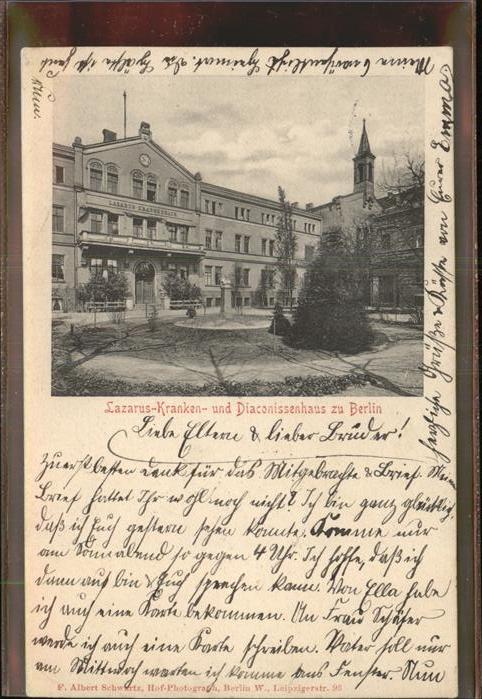 LAZARUS KRANKENHAUS
Lazarus-Kranken- und Diaconissenhaus zu Berlin
Liebe Eltern & lieber Bruder!
Zuerst besten Dank für das Mitgebrachte & Brief. Mein
Brief hattet Ihr wohl noch nicht? Ich bin ganz glücklich,
daß ich Euch gestern sehen konnte. Komme nur
am Sonnabend so gegen 4 Uhr. Ich hoffe, daß ich
dann auf bin & Euch sprechen kann. Von Ella habe
ich auch eine Karte bekommen. An Frau Schäfer
werde ich auch eine Karte schreiben. Vater soll nur
am Mittwoch warten ich komme ans Fenster. Nun
F. Albert Schwartz, Hof-Photograph, Berlin W., Leipzigerstr.
herzliche Grüße & Küsse von Eurer Emma
Meine